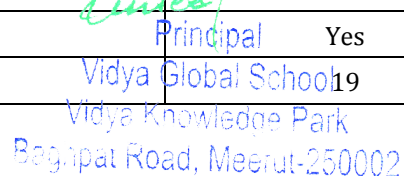 Principal Yes
Vidya Global School 19
Vidya Knowledge Park
Baghpat Road, Meerut-250002